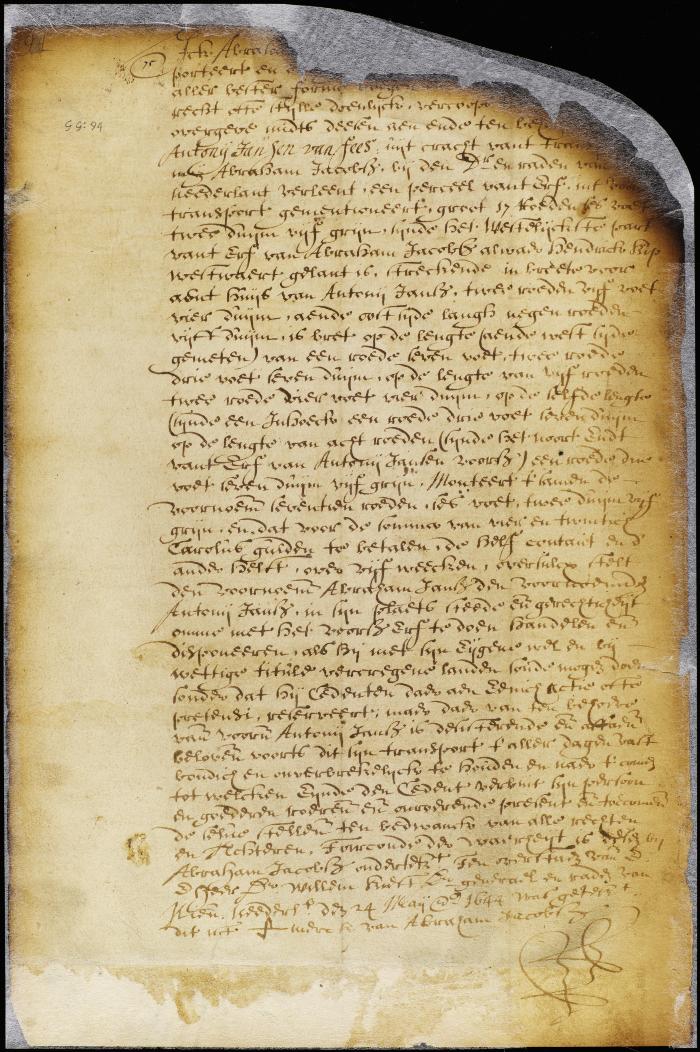 Ick Abraha
porteert en
aller bester forme
recht ofte stylle doenlyck, vercoop
overgeve midts deesen aen ende ten be
Antonij Jansen van fees, uijt cracht vant tran
mij Abraham Jacobsz, bij den Dr. en raden van
Neederlant verleent, een perceel vant Erf, int
transport gementioneert, groot 17 Roeden ses voet
twee duijm vijf grijn, sijnde het Westelijckste part
vant Erf van Abraham Jacobsz alwaer Hendrick Kip
westwaert gelant is, streckende in breete voor
aent huijs van Antonij Jansz, twee roeden vijf voet
vier duijm, aende oost sijde langh negen roeden
vijff duijm, is bret op de lengte (aende west sijde
gemeten) van een roede seven voet, twee roede
drie voet seven duijm, op de lengte van vijf roeden
twee roede vier voet vier duijm, op de selfde lengte
(sijnde een Inhoeck) een roede drie voet seven duijm
op de lengte van acht roeden (sijnde het noort Eijndt
vant Erf van Antonij Jansen voorsz) een roede drie
voet seven duijm vijf grijn, Monteert t samen de
voornoemt seventien roeden, ses voet, twee duijm vijf
grijn, en dat voor de somma van vier en twintich
Carolus gulden te betalen, de helf contant en d
ander helft, over vijf weecken, oversulcx stelt
den voornoemt Abraham Jansz den voornoemden
Antonij Jansz, in sijn plaets steede en gerechticheijt
omme met het voorsz Erf te doen handelen en
disponeeren, als hij met sijn Eijgene wel en bij
wettige titule vercregene landen soude mogen doen
sonder dat hij Cedenten daer aen Eenich actie ofte
pretensi, reserveert, maer daer van ten behoeve
van voorn Antonij Jansz is desisterende en
beloven voorts dit sijn transport t aller dagen vast
bondich en onverbreekelijck te houden en naer t comen
tot welcken Eijnde den Cedent verbint sijn persoon
en goederen roerende en onroerende present en toecomende
de selve stellen ten bedwanck van alle rechten
en Rechteren, Toirconde der waerheijt is deesen bij
Abraham Jacobsz onderteijkt Ten overstaen van D
E Heer Dr. Willem Kieft Dr generael en raden van
Nieu Neederlt den 24 Maij Ao 1644 was geteijt
dit ist merck van Abraham Jacobsz
GG: 94